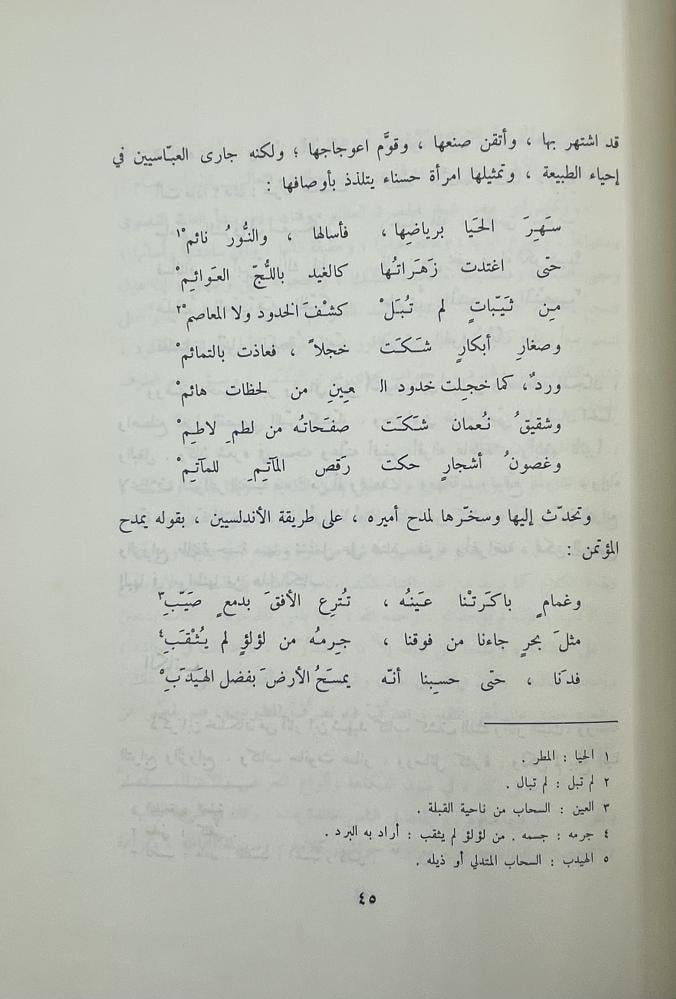 قد اشتهر بها ، وأتقن صنعها ، وقوَّم اعوجاجها ؛ ولكنه جارى العبّاسيين في
إحياء الطبيعة ، وتمثيلها امرأة حسناء يتلذذ بأوصافها :
سَهِرَ الحَيا برياضِها ، فأسالها ، والنُّورُ نائم١ْ
حتّى اغتدت زَهَراتُها كالغيد باللُّجّ العَوائِمْ
مِن ثَيّباتٍ لم تُبَلْ كشْفَ الخدود ولا المعاصم٢ْ
وصغارِ أبكارٍ شَكَت خجلاً ، فعاذت بالتمائمْ
وردٌ، كما خجِلت خدود الـ ـعِينِ من لحظات هائمْ
وشقيقُ نُعمان شَكَت صفَحاتُه من لطمِ لاطِمْ
وغصونُ أشجارٍ حكت رَقص المآتِمِ للمآتِمْ
وتحدّث إليها وسخّرها لمدح أميره ، على طريقة الأندلسيين ، بقوله يمدح
المؤتمن :
وغمامٍ باكَرتْنا عَينُه ، تُترِع الأفقَ بدمعٍ صَيّبِ٣
مثلَ بحرٍ جاءنا من فوقنا ، جِرمُه من لؤلؤٍ لم يُثْقَبِ٤
فدَنا ، حتّى حسِبنا أنّه يمسَحُ الأرضَ بفضل الهَيدَبِ٥
١ الحيا : المطر .
٢ لم تبل : لم تبال .
٣ العين : السحاب من ناحية القبلة .
٤ جرمه : جسمه . من لؤلؤ لم يثقب : أراد به البرد .
٥ الهيدب : السحاب المتدلي أو ذيله .
٤٥